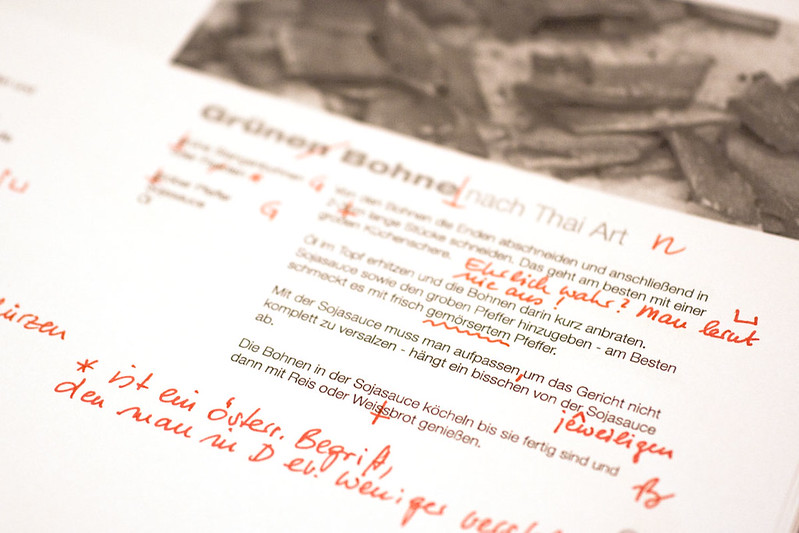 Grünen Bohne nach Thai Art n
von den Bohnen die Enden abschneiden und anschließend in
lange Stücke schneiden. Das geht am besten mit einer
großen Küchenschere.
Ehrlich wahr? Man lernt
nie aus!
Öl im Topf erhitzen und die Bohnen darin kurz anbraten.
Sojasauce sowie den groben Pfeffer hinzugeben - am Besten
schmeckt es mit frisch gemörsertem Pfeffer.
Mit der Sojasauce muss man aufpassen um das Gericht nicht
komplett zu versalzen - hängt ein bisschen von der Sojasauce
ab.
jeweiligen
Die Bohnen in der Sojasauce köcheln bis sie fertig sind und
dann mit Reis oder Weissbrot genießen.
ß
Pfeffer
Sojasauce
Öl
ürzen
* ist ein österr. Begriff,
den man in D ev. weniger